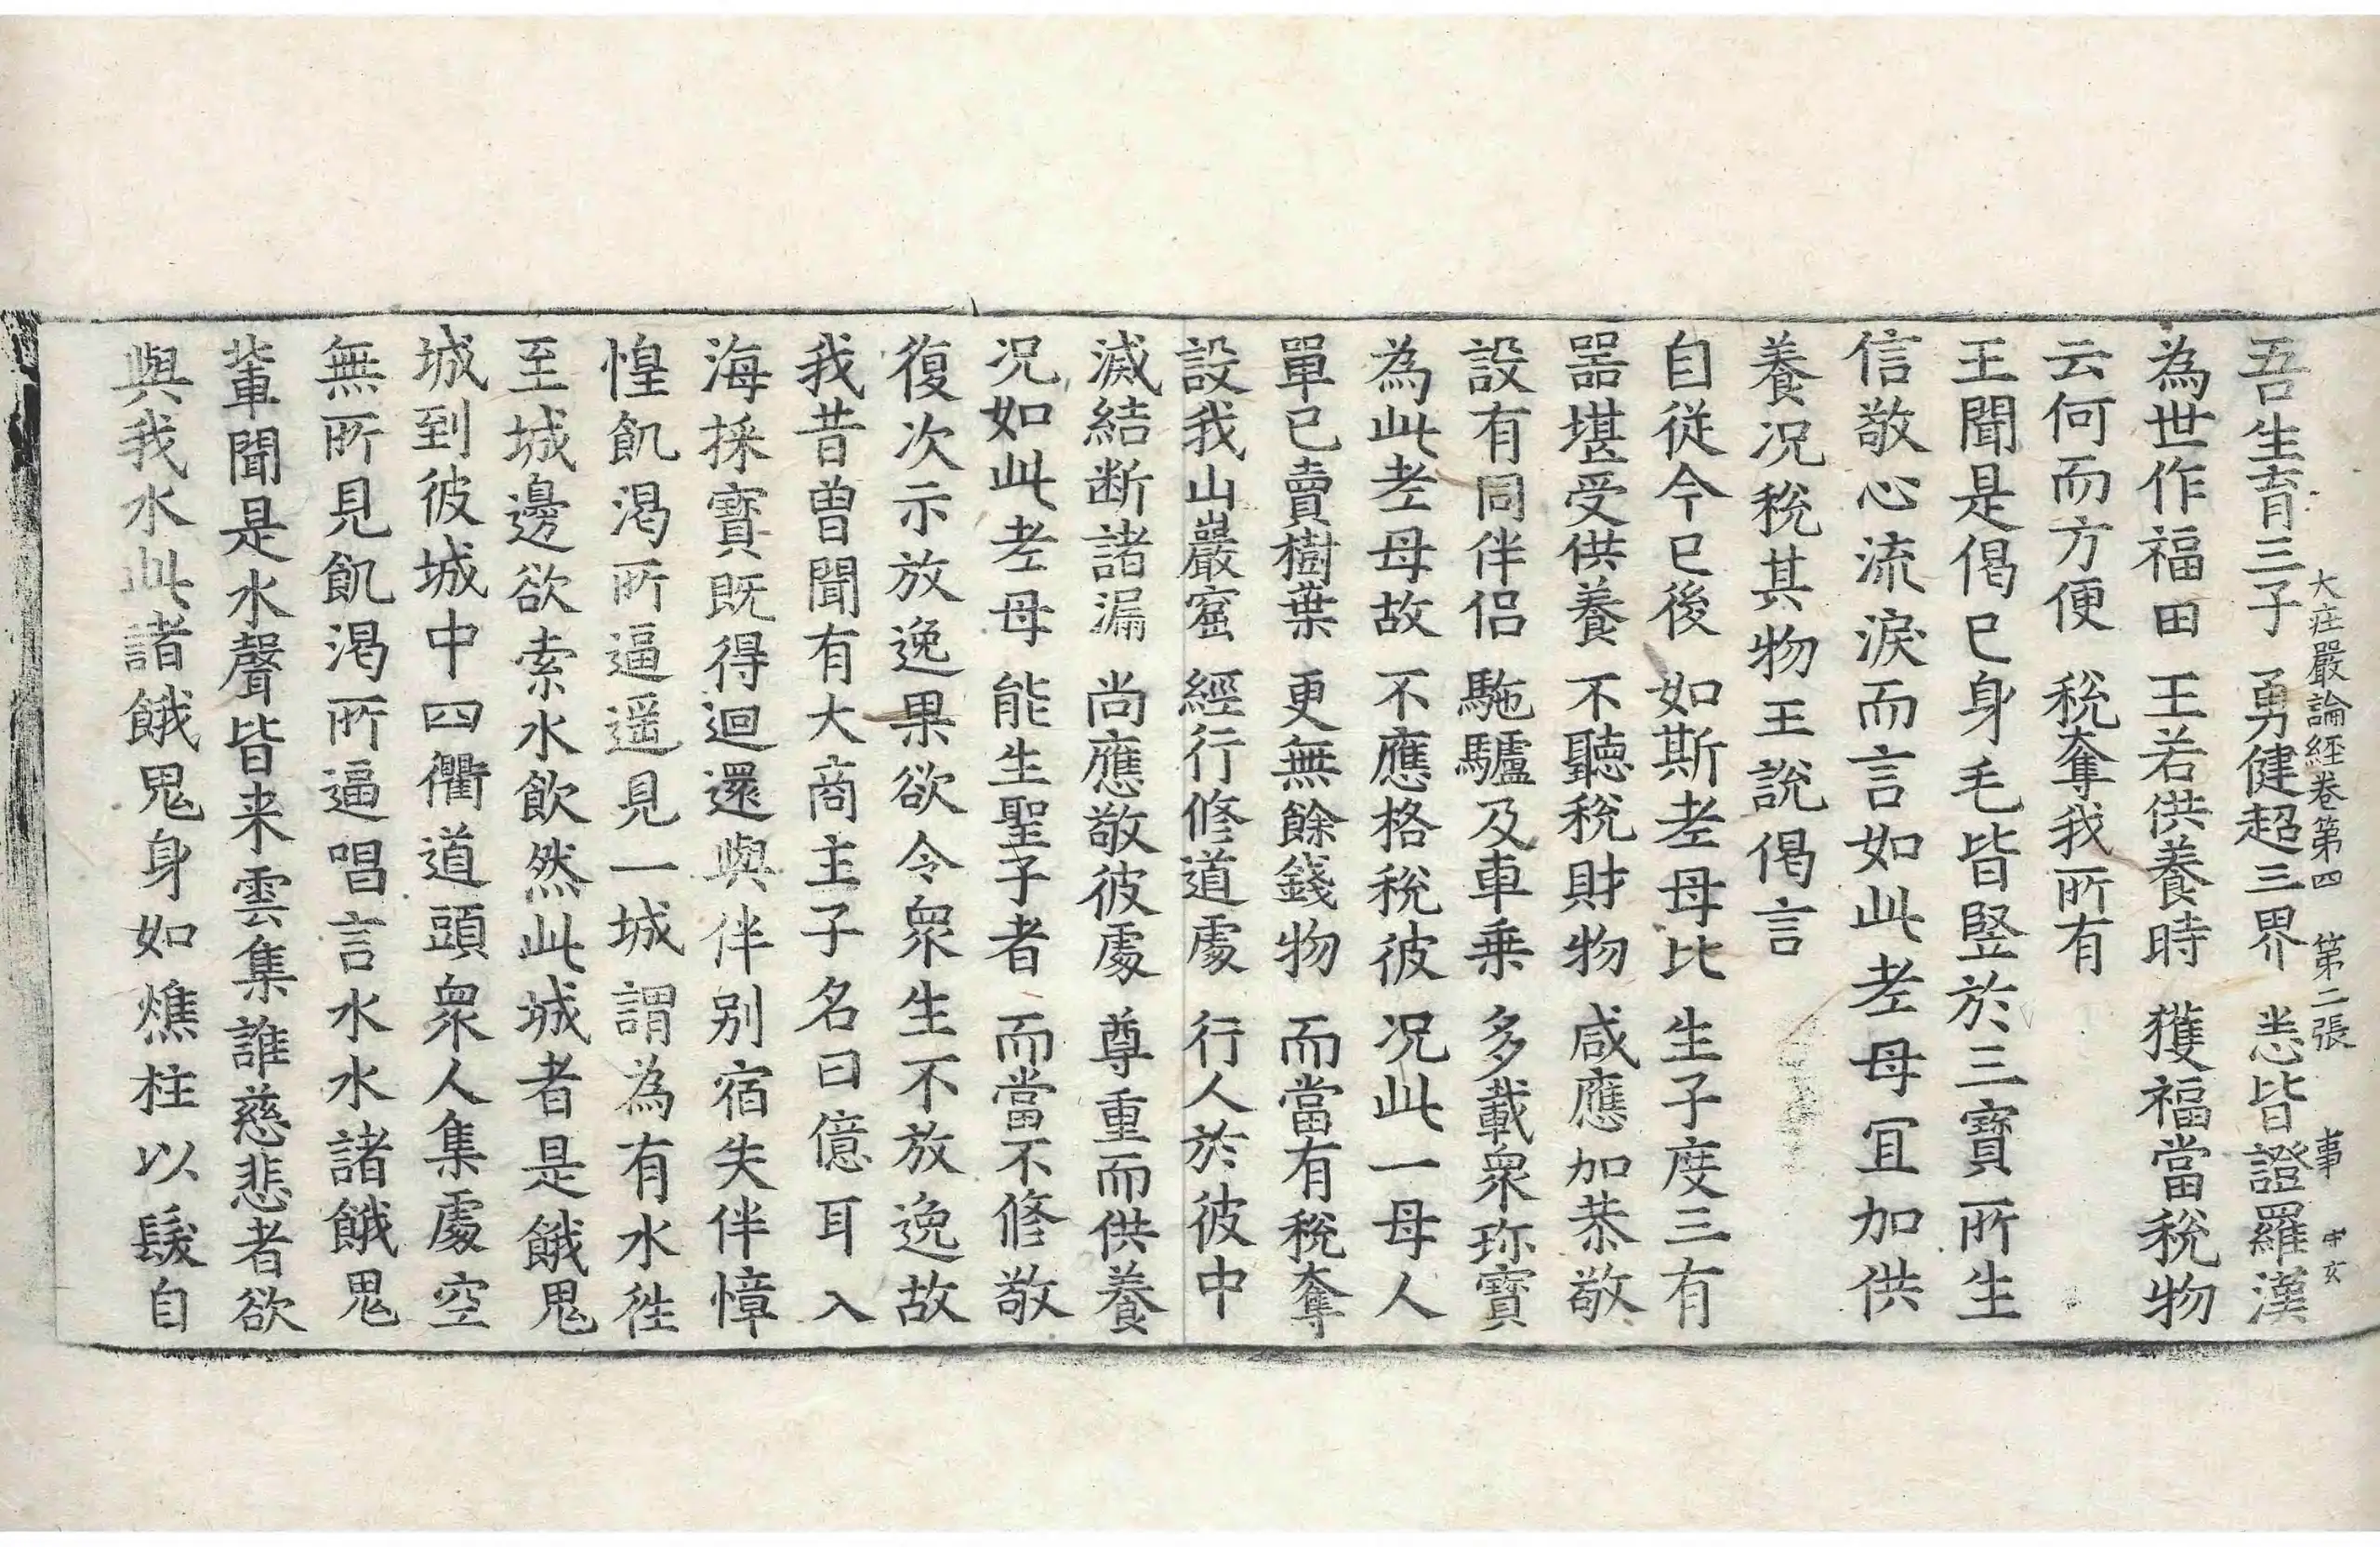 大庄嚴論經卷第四　第二張　事　中玄
吾生育三子　勇健超三界　悉皆證羅漢
為世作福田　王若供養時　獲福當稅物
云何而方便　稅奪我所有
王聞是偈已身毛皆竪於三寶所生
信敬心流淚而言如此老母冝加供
養况稅其物王說偈言
自從今已後　如斯老母比　生子度三有
噐堪受供養　不聽稅財物　咸應加恭敬
設有同伴侣　駞驢及車乗　多載衆珎寶
為此老母故　不應格稅彼　况此一母人
單已賣樹葉　更無餘錢物　而當有稅奪
設我山巖窟　經行修道處　行人於彼中
滅結断諸漏　尚應敬彼處　尊重而供養
况如此老母　能生聖子者　而當不修敬
復次示放逸果欲令衆生不放逸故
我昔曾聞有大商主子名曰億耳入
海採寶既得迴還與伴别宿失伴慞
惶飢渴所逼遥見一城謂為有水徃
至城邊欲索水飲然此城者是餓鬼
城到彼城中四衢道頭衆人集處空
無所見飢渴所逼唱言水水諸餓鬼
輩聞是水聲皆来雲集誰慈悲者欲
與我水此諸餓鬼身如燋柱以髮自